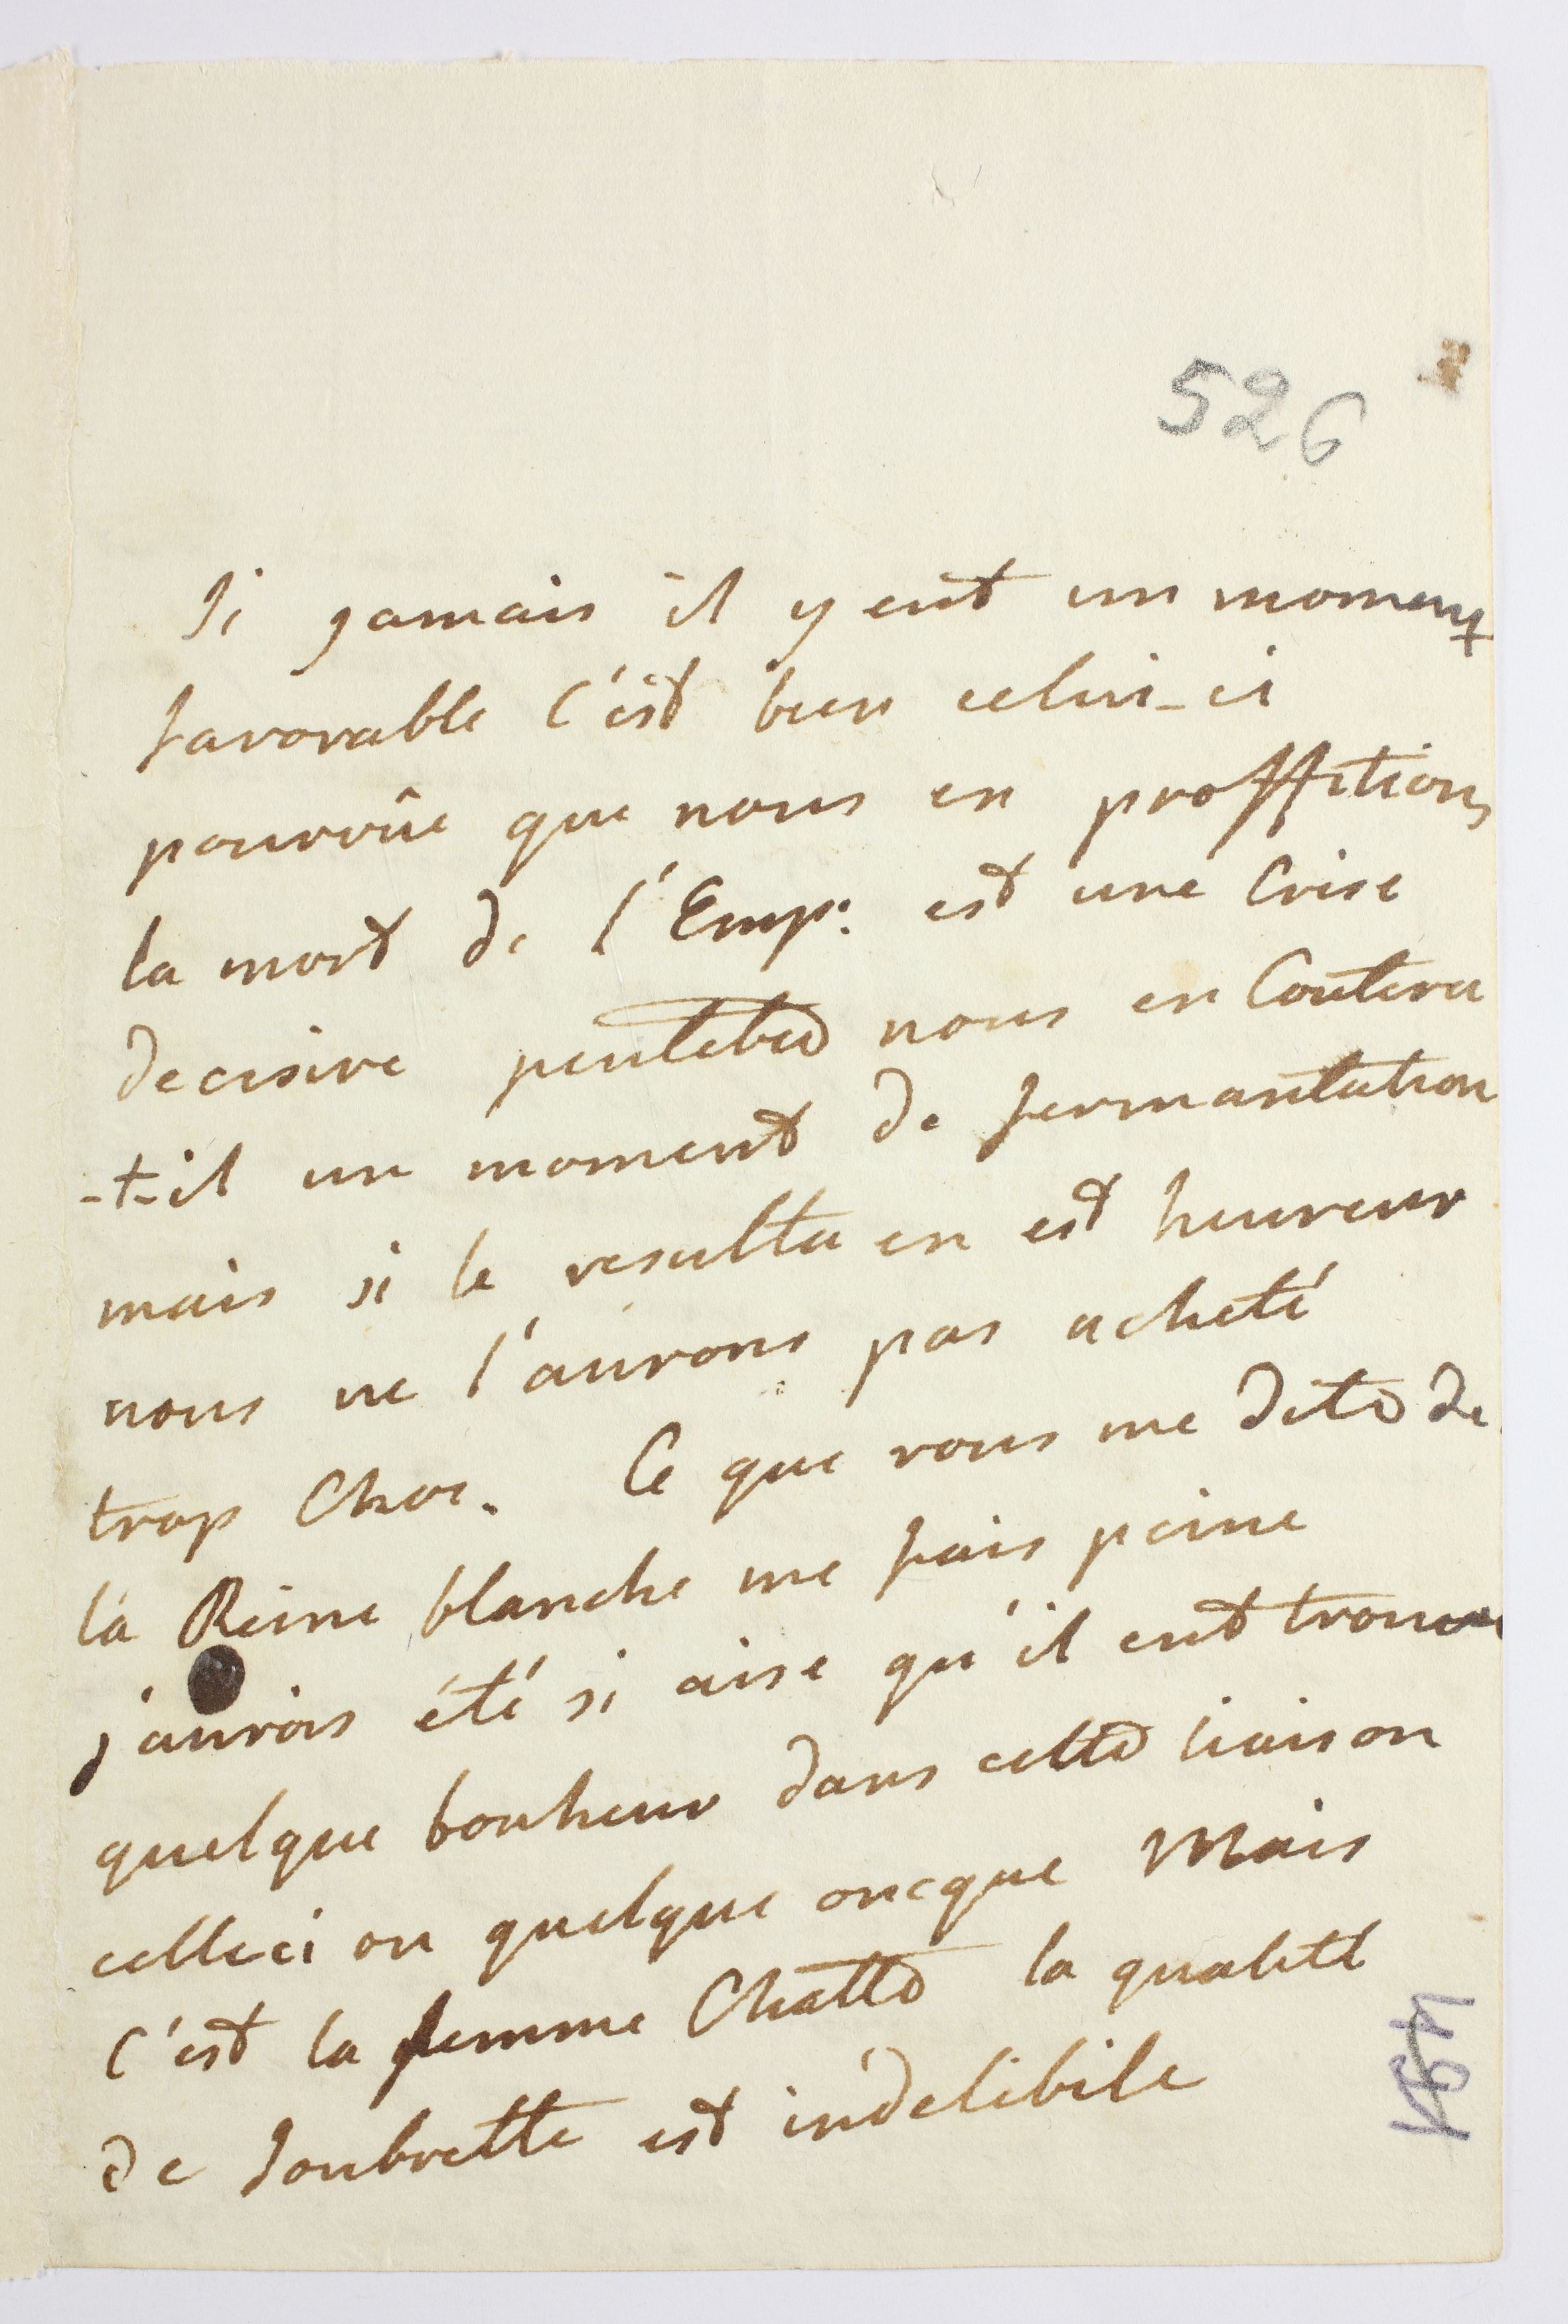 526
Si jamais il y eut un moment
favorable c'est bien celui-ci
pourvûe que nous en proffitions
la mort de l'Emp: est une Crise
decisive peutetre nous en Coutera
-t-il un moment de fermantation
mais si le resulta en est heureux
nous ne l'aurons pas acheté
trop Cher. Ce que vous me dite de
la Reine blanche me fais peine
j'aurois été si aise qu'il eut trouvé
quelque bonheur dans cette liaison
celleci ou quelque oncque Mais
C'est la femme Chatte la qualité
de Soubrette est indelibile